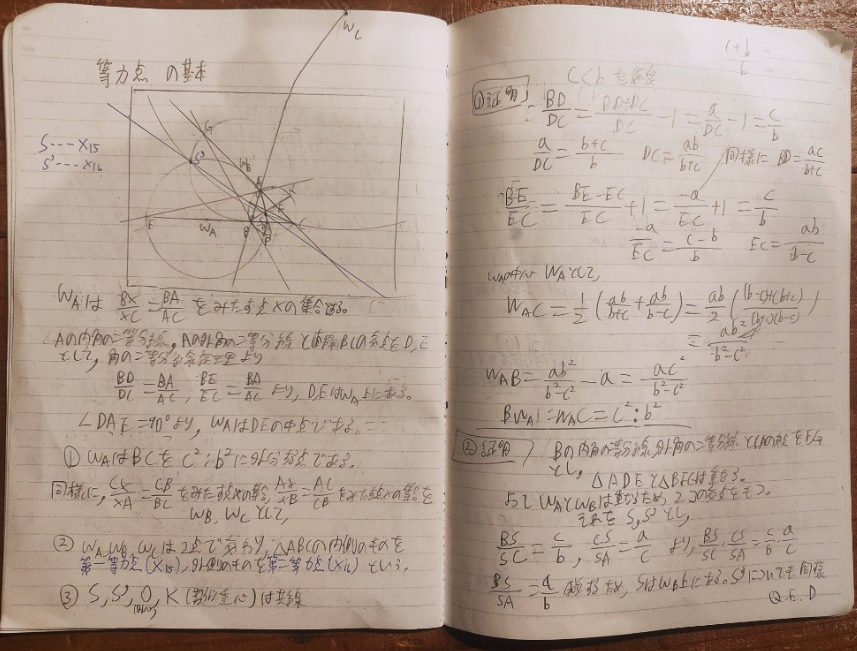 等力点 の基本
S --- X₁₅
S' --- X₁₆
W_C
G
S'
W_B
E
W_A
B
C
P
W_Aは BX/XC = BA/AC をみたす点Xの集合である。
∠Aの内角の二等分線, Aの外角の二等分線と直線BCの交点をD, E
として, 角の二等分線定理より
BD/DC = BA/AC, BE/EC = BA/AC より, D,EはW_A上にある。
∠DAE=90°より, W_AはDEの中点である。
① W_AはBCを c²:b²に外分する点である。
同様に, CX/XA = CB/BA をみたす点Xの集合, AX/XB = AC/CB をみたす点Xの集合を
W_B, W_Cとして,
② W_A, W_B, W_Cは2点で交わり, △ABCの内側のものを
第一等力点(X₁₅), 外側のものを第二等力点(X₁₆) という。
③ S, S', O, K (類似重心)は共線
(c+b)/b
c<b を仮定
①証明) BD/DC = (BD+DC)/DC - 1 = a/DC - 1 = c/b
a/DC = (b+c)/b DC = ab/(b+c) 同様に BD = ac/(b+c)
BE/EC = (BE-EC)/EC + 1 = -a/EC + 1 = c/b
-a/EC = (c-b)/b EC = ab/(b-c)
W_Aとして,
W_AC = 1/2 (ab/(b+c) + ab/(b-c)) = ab/2 ((b-c)+(b+c))/((b+c)(b-c))
= ab²/(b²-c²)
W_AB = ab²/(b²-c²) - a = ac²/(b²-c²)
BW_A : W_AC = c² : b²
②証明) Bの内角の二等分線, 外角の二等分線とCAの交点をF,G
とし, △ADEと△BFGは重なる。
よって W_AとW_Bは重なるため, 2つの交点をもつ。
それを S, S'とし,
BS/SC = c/b, CS/SA = a/c より, BS/SC・CS/SA = c/b・a/c
BS/SA = a/b であるため, SはW_C上にある。S'についても同様
Q.E.D